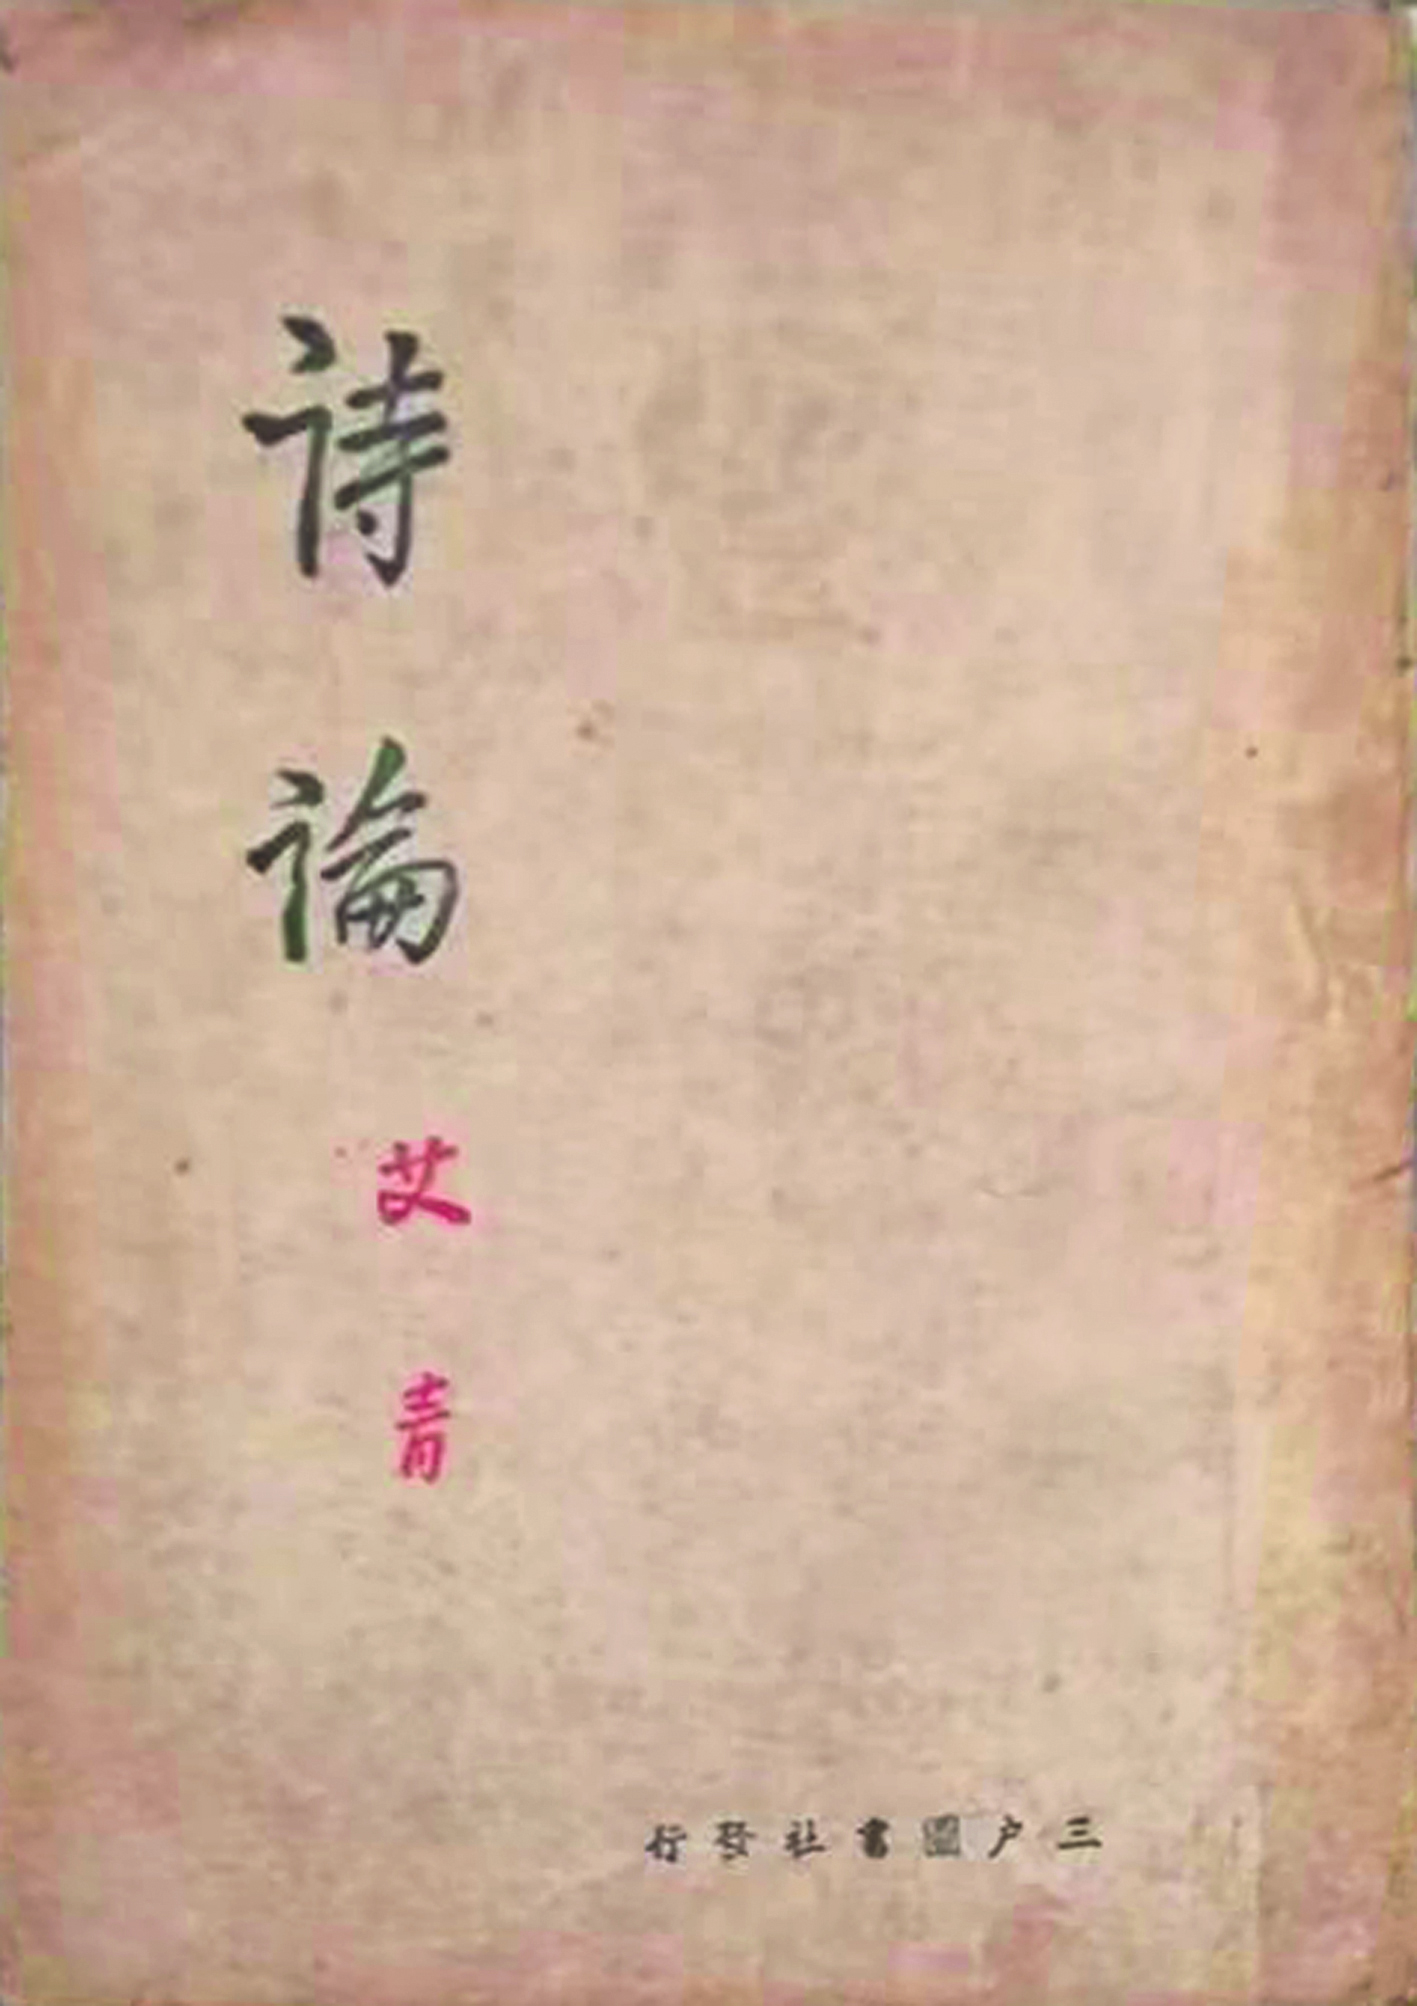 詩論
艾青
三户圖書社發行